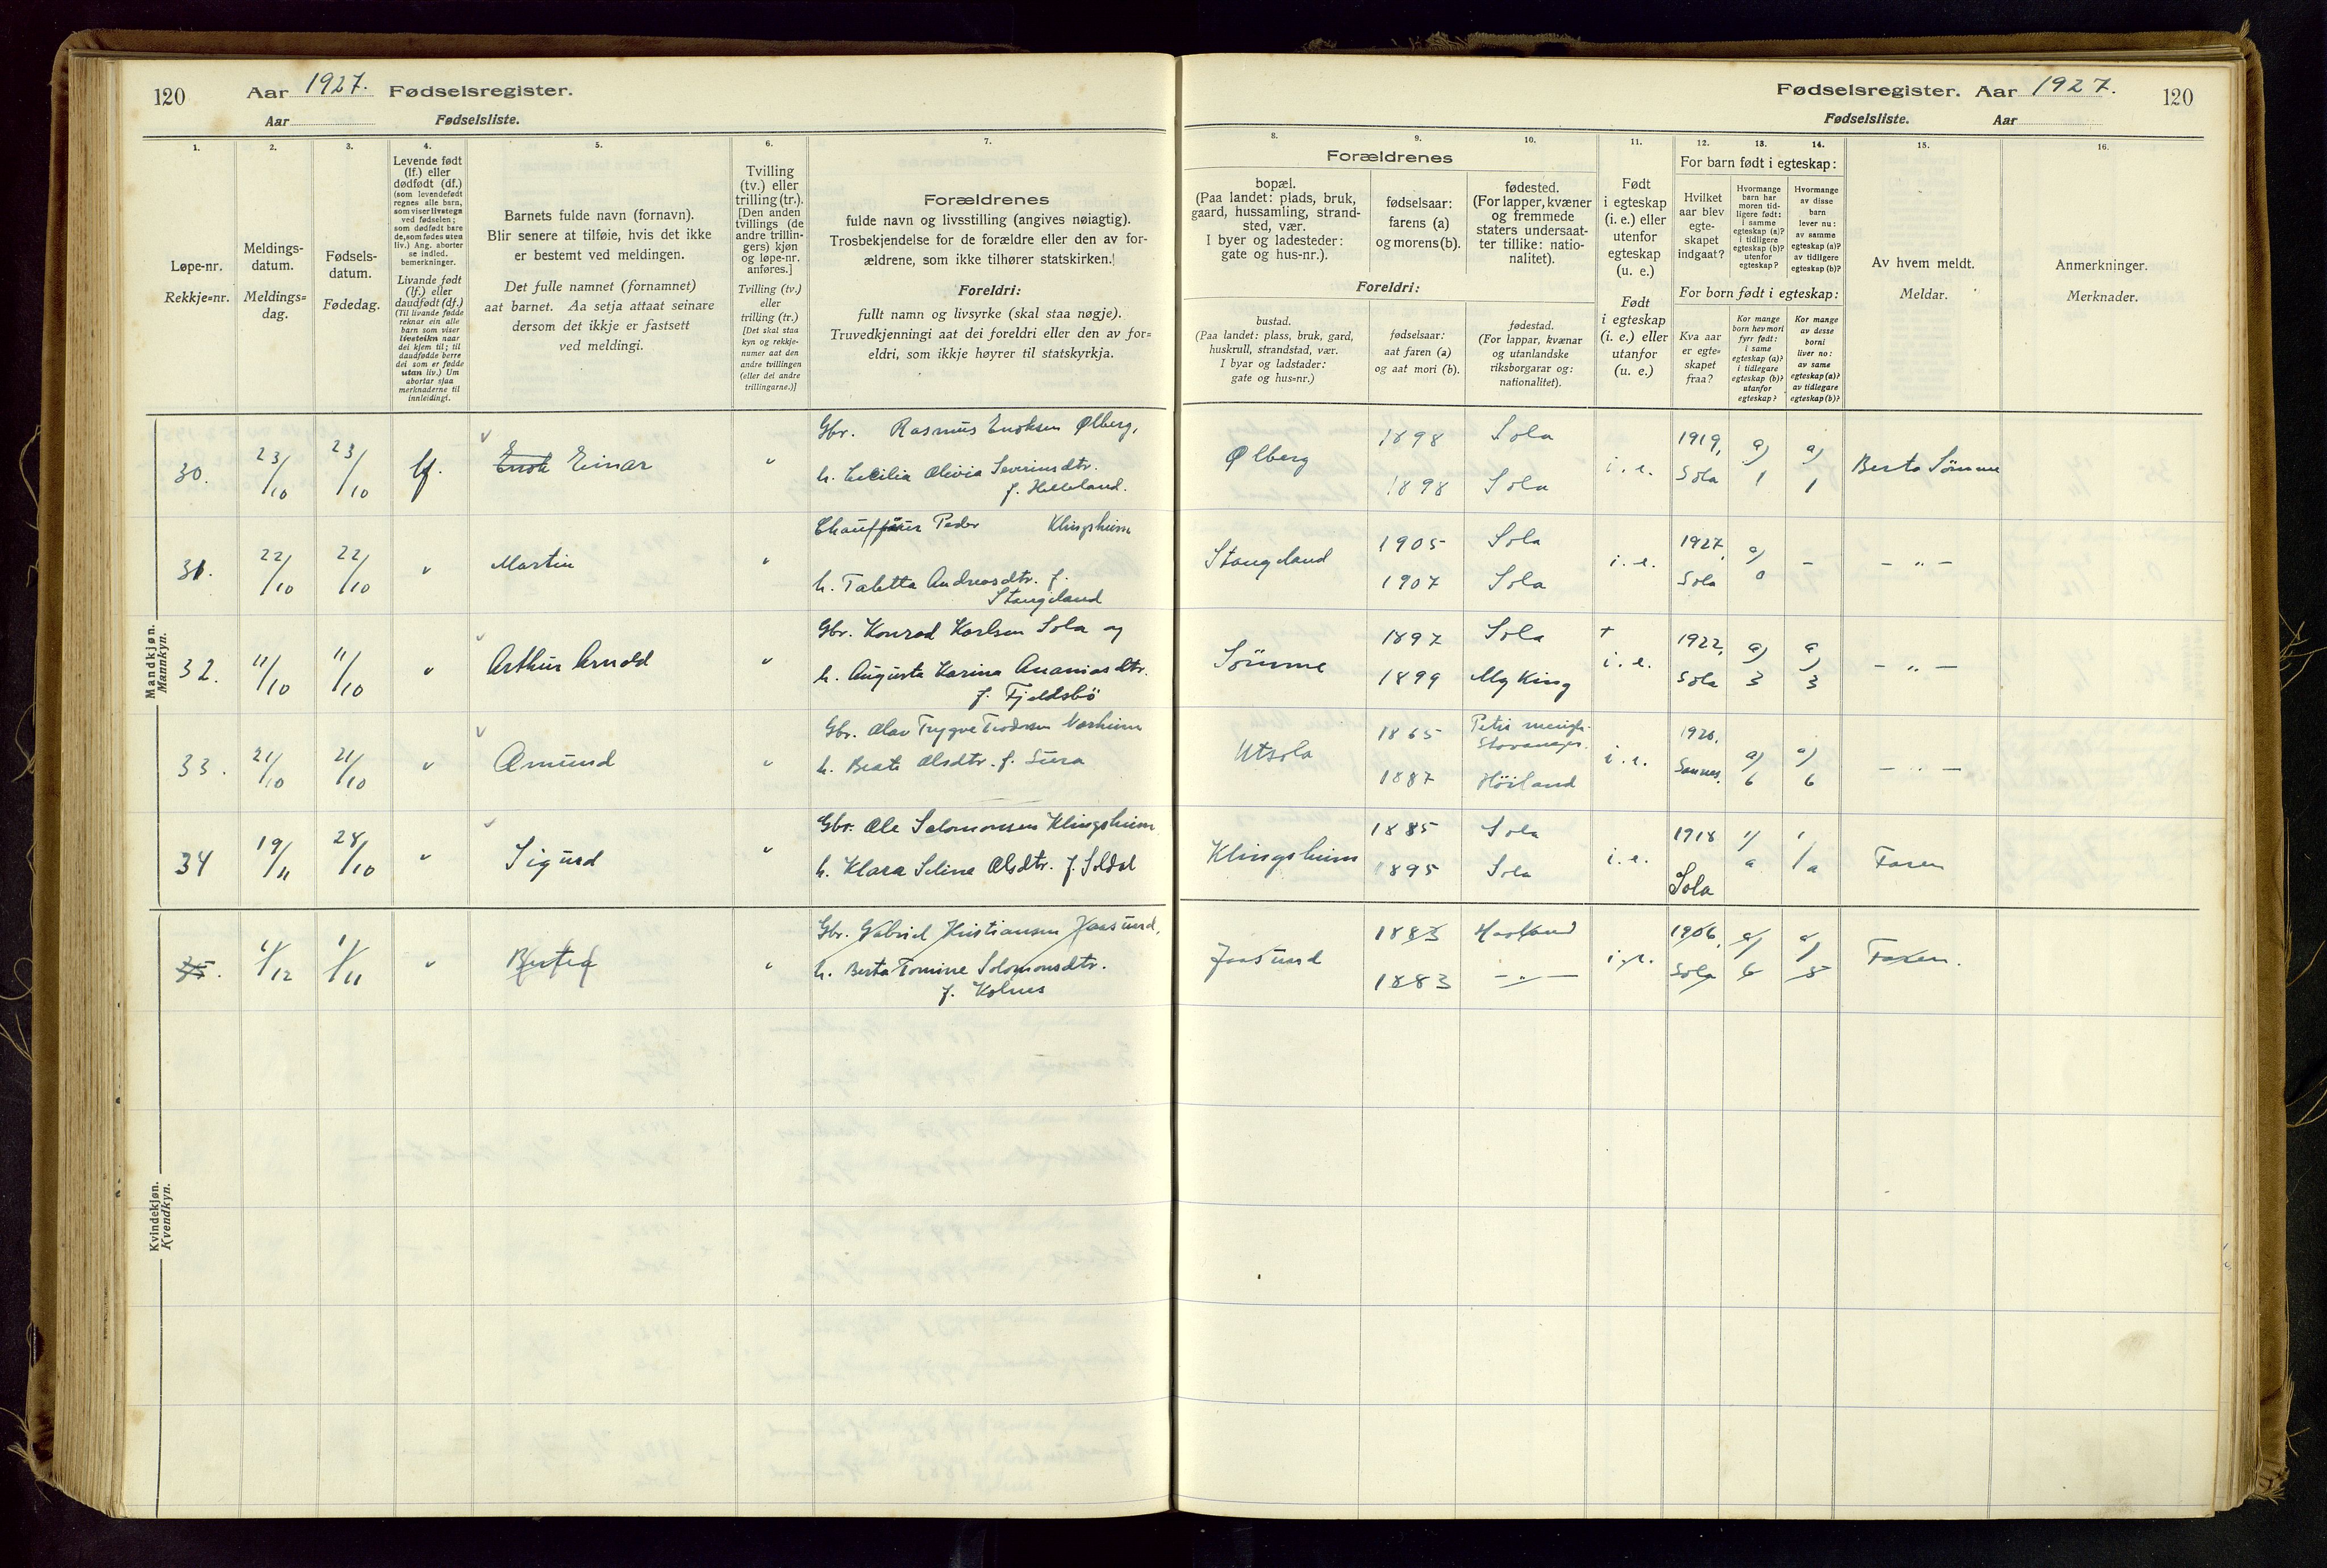 120
Aar 1927. Fødselsregister.
Aar Fødselsliste.
1.
2.
3.
4.
5.
6.
7.
Løpe-nr.
Rekkje=nr.
Meldings-
datum.
Meldings=
dag.
Fødsels-
datum.
Fødedag.
Levende født
(lf.) eller
dødfødt (df.)
(som levendefødt
regnes alle barn,
som viser livstegn
ved fødselen;
som dødfødt bare
de, som fødes uten
liv.) Ang. aborter
se indled.
bemerkninger.
Livande født
(lf.) eller
daudfødt (df.)
(Til livande fødde
reknar ein alle
barn som viser
livsteikn naar
dei kjem til; til
daudfødde berre
dei som er fødde
utan liv.) Um
abortar sjaa
merknaderne til
innleidingi.
Barnets fulde navn (fornavn).
Blir senere at tilføie, hvis det ikke
er bestemt ved meldingen.
Det fulle namnet (fornamnet)
aat barnet. Aa setja attaat seinare
dersom det ikkje er fastsett
ved meldingi.
Tvilling
(tv.) eller
trilling (tr.).
[Den anden
tvillings (de
andre trillin-
gers) kjøn
og løpe-nr.
anføres.]
Tvilling (tv.)
eller
trilling (tr.)
[Det skal staa
kyn og rekkje-
numer aat den
andre tvillingen
(eller dei andre
trillingarne.)]
Forældrenes
fulde navn og livsstilling (angives nøiagtig).
Trosbekjendelse for de forældre eller den av for-
ældrene, som ikke tilhører statskirken.
Foreldri:
fullt namn og livsyrke (skal staa nøgje).
Truvedkjenningi aat dei foreldri eller den av for=
eldri, som ikkje høyrer til statskyrkja.
Mandkjøn.
Mannkyn.
30. 23/10 23/10 lf. Enok Einar "
Gbr. Rasmus Enoksen Ølberg,
h. Cecilia Olivia Severinsdtr.
f. Helleland.
31. 22/10 22/10 " Martin "
Chauffør Peder Klingsheim
h. Taletta Andreasdtr. f.
Stangeland
32. 11/10 11/10 " Arthur Arnold "
Gbr. Konrad Karlsen Sola og
h. Augusta Karina Ananiasdtr.
f. Fjeldsbö
33. 21/10 21/10 " Amund "
Gbr. Olav Trygve Teodorsen Norheim
h. Beate Olsdtr. f. Sura
34 19/11 28/10 " Sigurd "
Gbr. Ole Salomonsen Klingsheim
h. Klara Seline Olsdtr. f. Soldal
Kvindekjøn.
Kvendkyn.
35. 1/12 1/11 " "
Gbr. Gabriel Kristiansen Jaasund,
h. Berta Tomine Solomonsdtr.
f. Kolnes
Fødselsregister. Aar 1927. 120
Fødselsliste. Aar
8.
9.
10.
11.
12.
13.
14.
15.
16.
Forældrenes
bopæl.
(Paa landet: plads, bruk,
gaard, hussamling, strand-
sted, vær.
I byer og ladesteder:
gate og hus-nr.).
fødselsaar:
farens (a)
og morens (b).
fødested.
(For lapper, kvæner
og fremmede
staters undersaat-
ter tillike: natio-
nalitet).
Foreldri:
bustad.
(Paa landet: plass, bruk, gard,
huskrull, strandstad, vær.
I byar og ladstader:
gate og hus=nr.)
fødselsaar:
aat faren (a)
og aat mori (b).
fødestad.
(For lappar, kvænar
og utanlandske
riksborgarar og:
nationalitet).
Født
i egteskap
(i. e.) eller
utenfor
egteskap
(u. e.)
Født
i egteskap
(i. e.) eller
utanfor
(u. e.)
For barn født i egteskap:
Hvilket
aar blev
egte-
skapet
indgaat?
Hvormange
barn har
moren tid-
ligere født:
i samme
egteskap (a)?
i tidligere
egteskap (b)?
utenfor
egteskap?
Hvormange
av disse
barn
lever nu:
av samme
egteskap (a)?
av tidligere
egteskap (b)?
For born født i egteskap:
Kva aar
er egte=
skapet
fraa?
Kor mange
born hev mori
fyrr født:
i same
egteskap (a)?
i tidlegare
egteskap (b)?
utanfor
egteskap?
Kor mange
av desse
borni
liver no:
av same
egteskap (a)?
av tidlegare
egteskap (b)?
Av hvem meldt.
Meldar.
Anmerkninger.
Merknader.
Ølberg 1898 Sola i. e. 1919, a) a) Berta Sömme
1898 Sola Sola 1 1
Stangeland 1905 Sola i. e. 1927, a) - - " -
1907 Sola Sola 0
Sömme 1897 Sola + i. e. 1922, a) a) - " -
1899 My King Sola 3 3
Utsola 1865 Petri menigh. Stavanger. i. e. 1926, a) a) - " -
1887 Höiland Sannes. 6 6
Klingsheim 1885 Sola i. e. 1918 1/a 1/a Faren
1895 Sola Sola
Jaasund 1883 Haaland i. e. 1906, a) a) Faren.
1883 - " - Sola 6 5